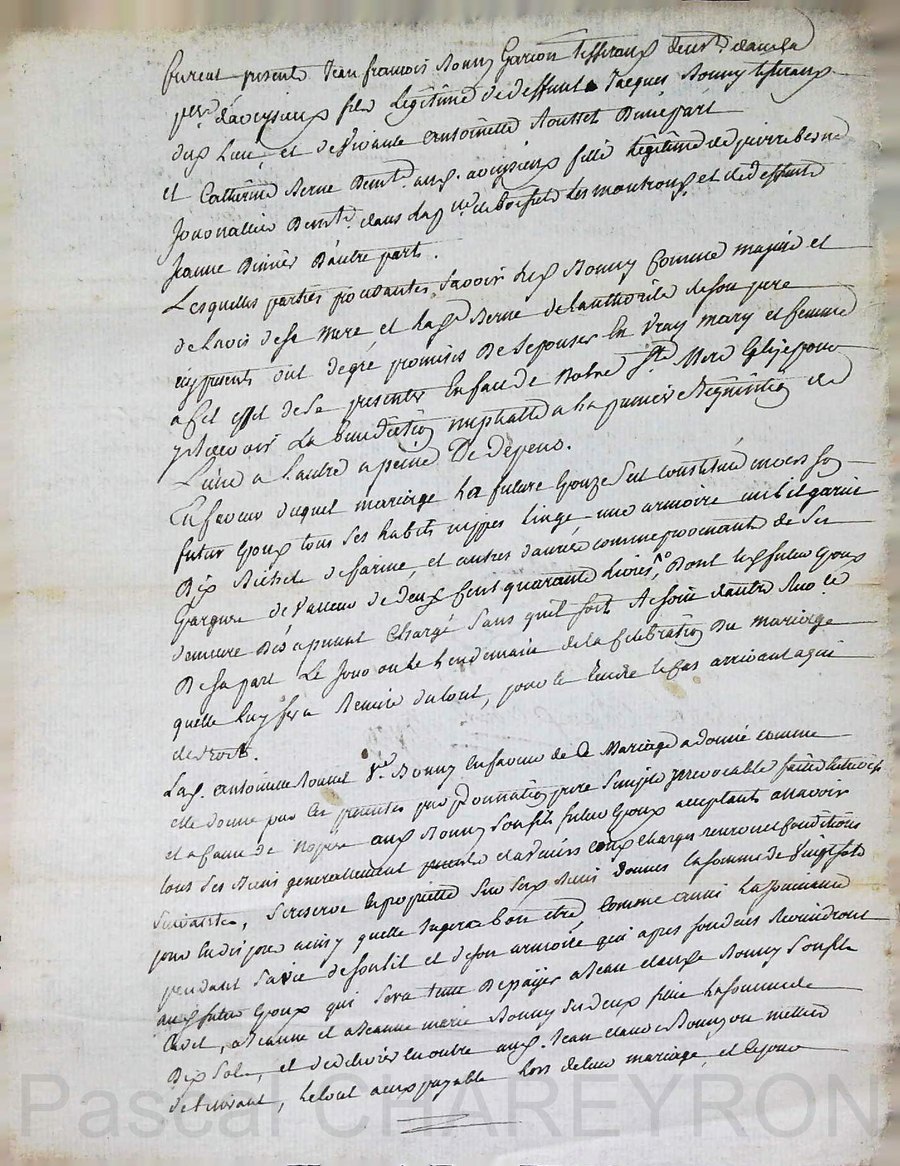 furent présents Jean francois Bonny Garcon tisserand demt. dans la
psse. d'aveysieux fils légitime de deffunt Jacques Bonny tisserand
dud. Lieu, et de Vivante antoinette Rousset D'une part
et Catherine Berne Demte. aud. aveysieux fille légitime de pierre berne
Journallier Demt. dans la psse. de boisset les montrond et de deffunte
Jeanne D'autre part.
Lesquelles parties procédantes Savoir led. Bonny Comme majeur et
de l'avis de sa Mere et lad. Berne de l'authorité de son pere
icy présents ont de gré promises De Sepouser En vray mary et femme
a Cet effet de Se presenter En face de Notre Ste. Mere Eglise pour
y Recevoir La Benediction nuptialle a La premiere Requisition de
L'une a l'autre a peine De dépens.
En faveur duquel mariage La future Epouze S'est constituée envers son
futur Epoux tous Ses habits nippes linge une armoire un lit garni
Dix Bichets de farine et autres danrées comme provenant de Ses
Epargnes de valleur de deux Cent quarante Livres, Dont led. futur Epoux
demeure Dès apresent Chargé Sans qu'il soit Besoin d'autre
De sa part Le Jour ou le Lendemain de la Celebration Du mariage
quelle luy fera Remise du tout, pour le Rendre le Cas arrivant a qui
de droit.
Lad. antoinette Rousset Ve. Bonny En faveur de Ce Mariage a donné comme
elle donne par Ces presentes par Donnation pure Simple irrevocable faitte entre vifs
et a Cause de Nopces aud. Bonny Son fils futur Epoux acceptant a Savoir
tous Ses Biens generallement presents et avenirs aux Charges reserves et Conditions
Suivantes, Se reserve la proprieté Sur Ses Biens donnés la Somme de Vingt Sols
pour En disposer ainsy quelle Jugera bon être, Comme aussi La Jouissance
pendant Sa vie de Son lit et de Son armoire qui apres Son deces Reviendront
aud. futur Epoux qui Sera tenu De payer a Jean claude Bonny Son fils
Cadet, a Jeanne et a Jeanne marie Bonny Ses deux filles La Somme de
Dix Sols, et de delivrer En outre aud. Jean claude Bonny un mettier
de tisserand, le tout a eux payable Lors de leur mariage, et Ce pour
Pascal CHAREYRON